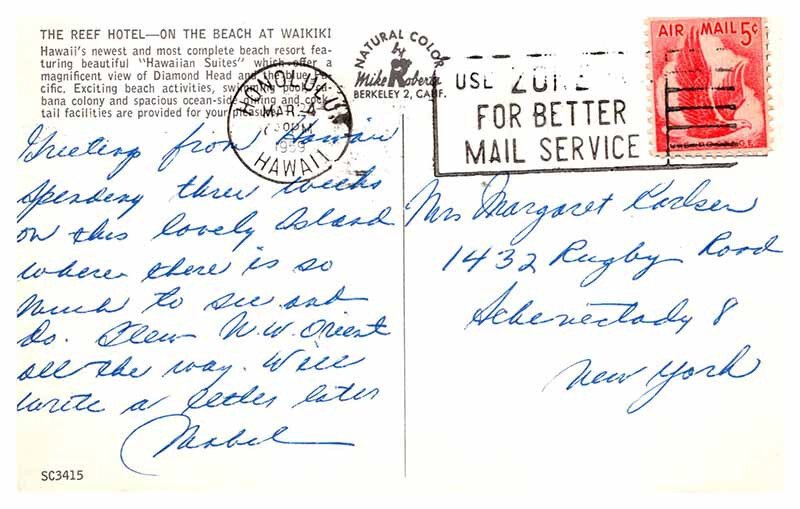 THE REEF HOTEL—ON THE BEACH AT WAIKIKI
Hawaii's newest and most complete beach resort fea-
turing beautiful "Hawaiian Suites" which offer a
magnificent view of Diamond Head and the blue Pa-
cific. Exciting beach activities, swimming pool, ca-
bana colony and spacious ocean-side dining and cock-
tail facilities are provided for your pleasure.
NATURAL COLOR
by
Mike Roberts
BERKELEY 2, CALIF.
HONOLULU
MAR 4
PM
1959
HAWAII
USE ZONE
FOR BETTER
MAIL SERVICE
AIR MAIL 5¢
Greeting from Hawaii
Spending three weeks
on this lovely Island
where there is so
much to see and
do. Flew N.W. Orient
all the way. Will
write a letter later
Mabel
Mrs Margaret Karlsen
1432 Rugby Road
Schenectady 8
New York
SC3415